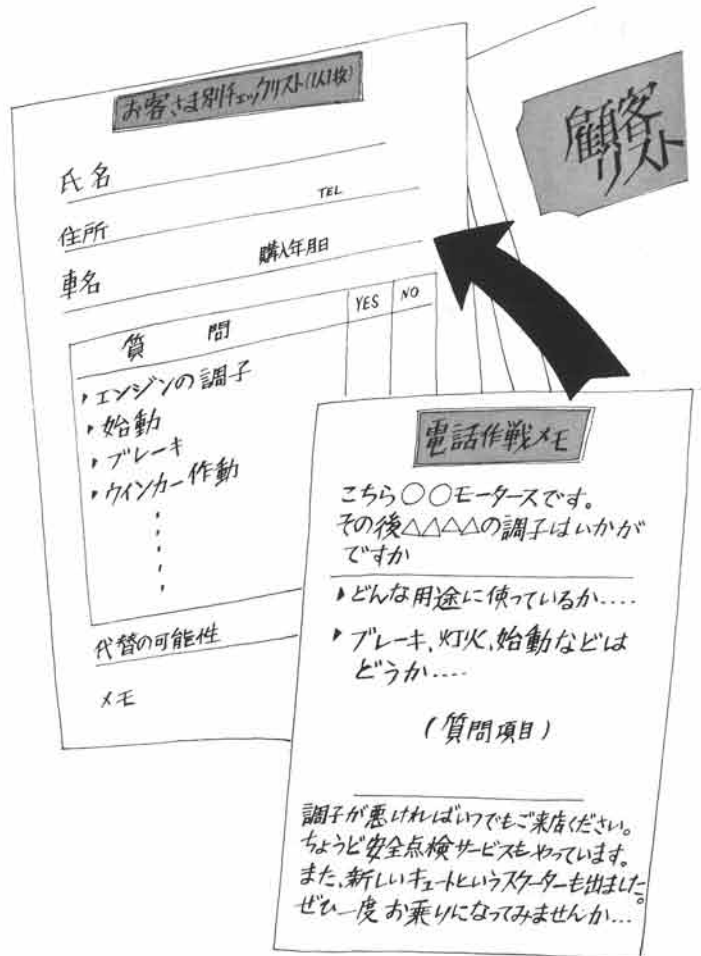 お客さま別チェックリスト(1人1枚)
氏名
住所 TEL
車名 購入年月日
質問 YES NO
・エンジンの調子
・始動
・ブレーキ
・ウインカー作動
代替の可能性
メモ
顧客
リスト
電話作戦メモ
こちら○○モータースです。
その後△△△△の調子はいかが
ですか
・どんな用途に使っているか‥‥
・ブレーキ、灯火、始動などは
どうか‥‥
(質問項目)
調子が悪ければいつでもご来店ください。
ちょうど安全点検サービスもやっています。
また、新しいキュートというスクーターも出ました。
ぜひ一度お乗りになってみませんか…